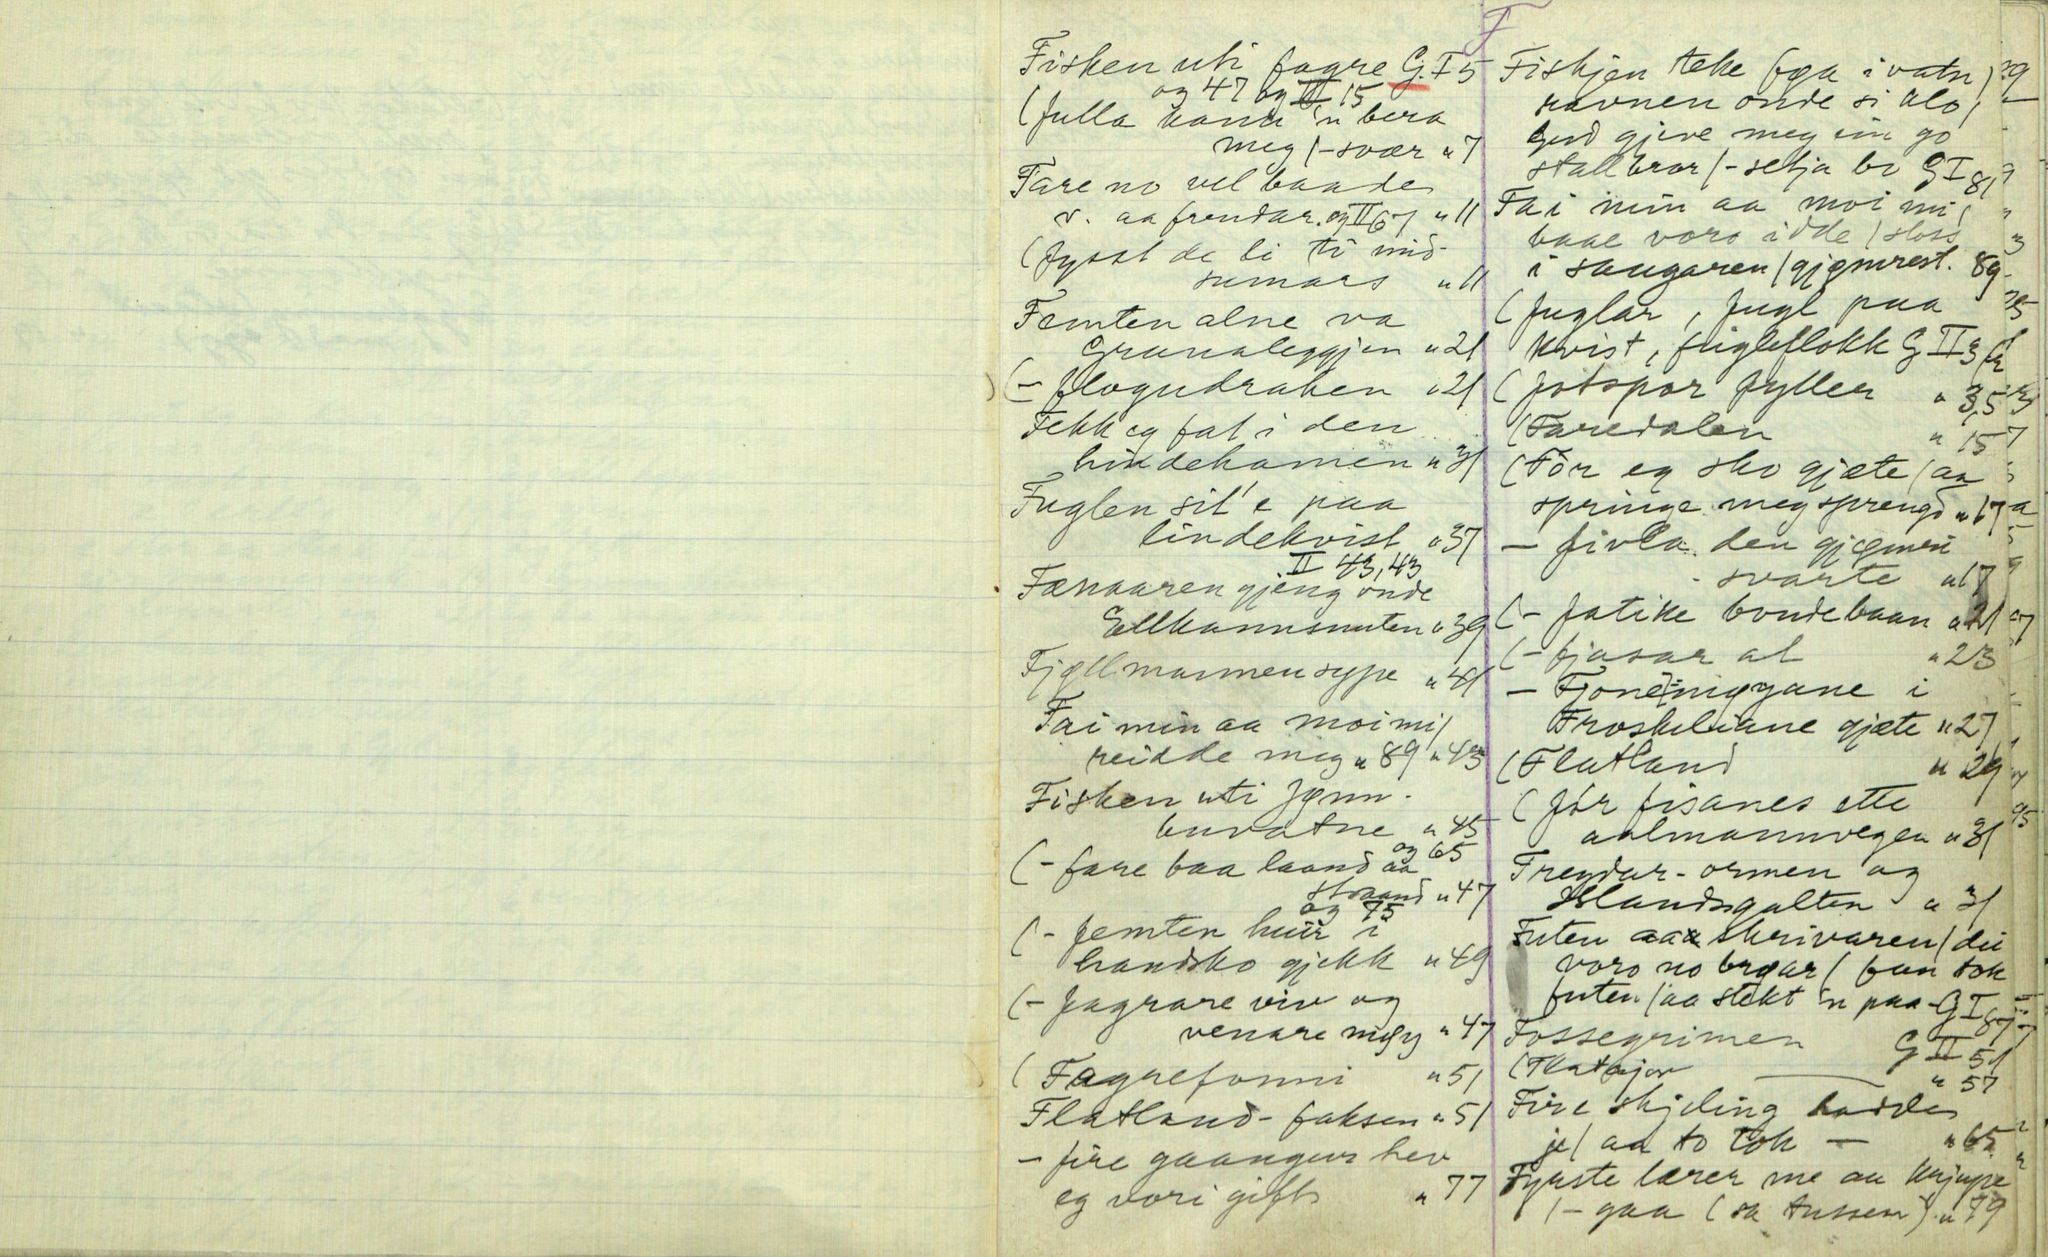 F
Fisken uti fagre G. I 5
og 47 og II 15
(fulla kann 'n bera
meg /-svær " 7
Fare no vel baade
v. aa frendar. og II 67 " 11
(fysst de li ti mid-
sumars " 11
Femten alne va
Granaleggjen " 21
(- flogudraken " 21
Fekk eg fat i den
hindehamen " 31
Fuglen sit'e paa
lindekvist " 37
II 43, 43
Fænaaren gjeng onde
Ellkannsnuten " 39
Fjøllmannen sype " 41
Fai min aa moi mi/
reidde meg " 89 " 43
Fisken uti Jønn-
buvatne " 45
og 65
(- fare baa laand aa
strand " 47
og 75
(- femten huir i
handsko gjekk " 49
(- fagrare viv og
venare møy " 47
(Fagrefonni " 51
Flatland-faksen " 51
- fire gaangur hev
eg vori gift " 77
Fiskjen teke føa i vatn /
ravnen onde si klo,
Gud gjeve meg ein go
stallbror /- setja bo G I 81
Fai min aa moi mi,
baae voro idde / sloss
i saugaren / gjønrest. 89
(fuglar, fugl paa
kvist, fugleflokk G II 3
(fotspor fyller " 3,5
(Faredalen " 15
(Før eg sko gjæte / aa
springe meg sprengd " 17
- fivla den gjømeri
svarte " 17
(- fatike bondebaan " 21
(- fjasar at " 23
- Fjone-niggane i
Froskeliane gjæte " 27
(Flatland " 29
(før fisanes ette
aalmannvegen " 31
Frendar-ormen og
Islandsgalten " 31
Futen aa skrivaren / dei
voro no brøar / fan tok
futen / aa stekt 'n paa - G I 87
Fossegrimen G II 51
(Flatsjor " 57
Fire skjeling hadde
je / aa to tok — " 65
Fyrste lærer me aa krjupe
/- gaa (sa tussen) " 79